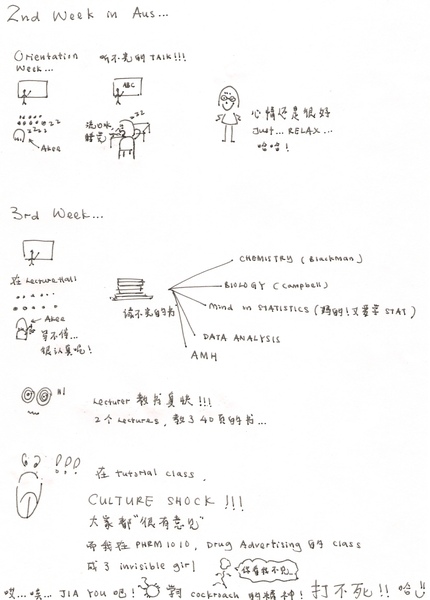 2nd Week in Aus...
Orientation Week...
听不完的 TALK!!!
ABC
zzz
zzzz
Akee
流口水
睡觉
心情还是很好
JUST... RELAX...
哈哈!
3rd Week...
在 Lecture Hall
Akee
写不停...
很认真呢!
读不完的书
CHEMISTRY (Blackman)
BIOLOGY (Campbell)
Mind on STATISTICS (妈的!又要学 STAT)
DATA ANALYSIS
AMH
Lecturer 教书真快!!!
2个 Lectures, 教了 40 页的书...
在 tutorial class,
CULTURE SHOCK !!!
大家都"很有意见"
而我在 PHRM1010, Drug Advertising 的 class
成了 invisible girl
你看我不见
哎...唉... JIA YOU 吧! 学习 cockroach 的精神! 打不死!! 哈!!